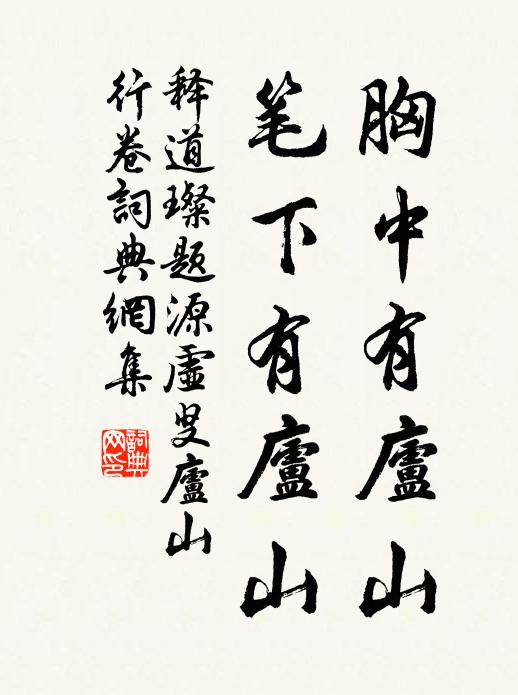 胸中有廬山
笔下有廬山
释道璨题源虛叟廬山
行卷詞典網集
詞典网印